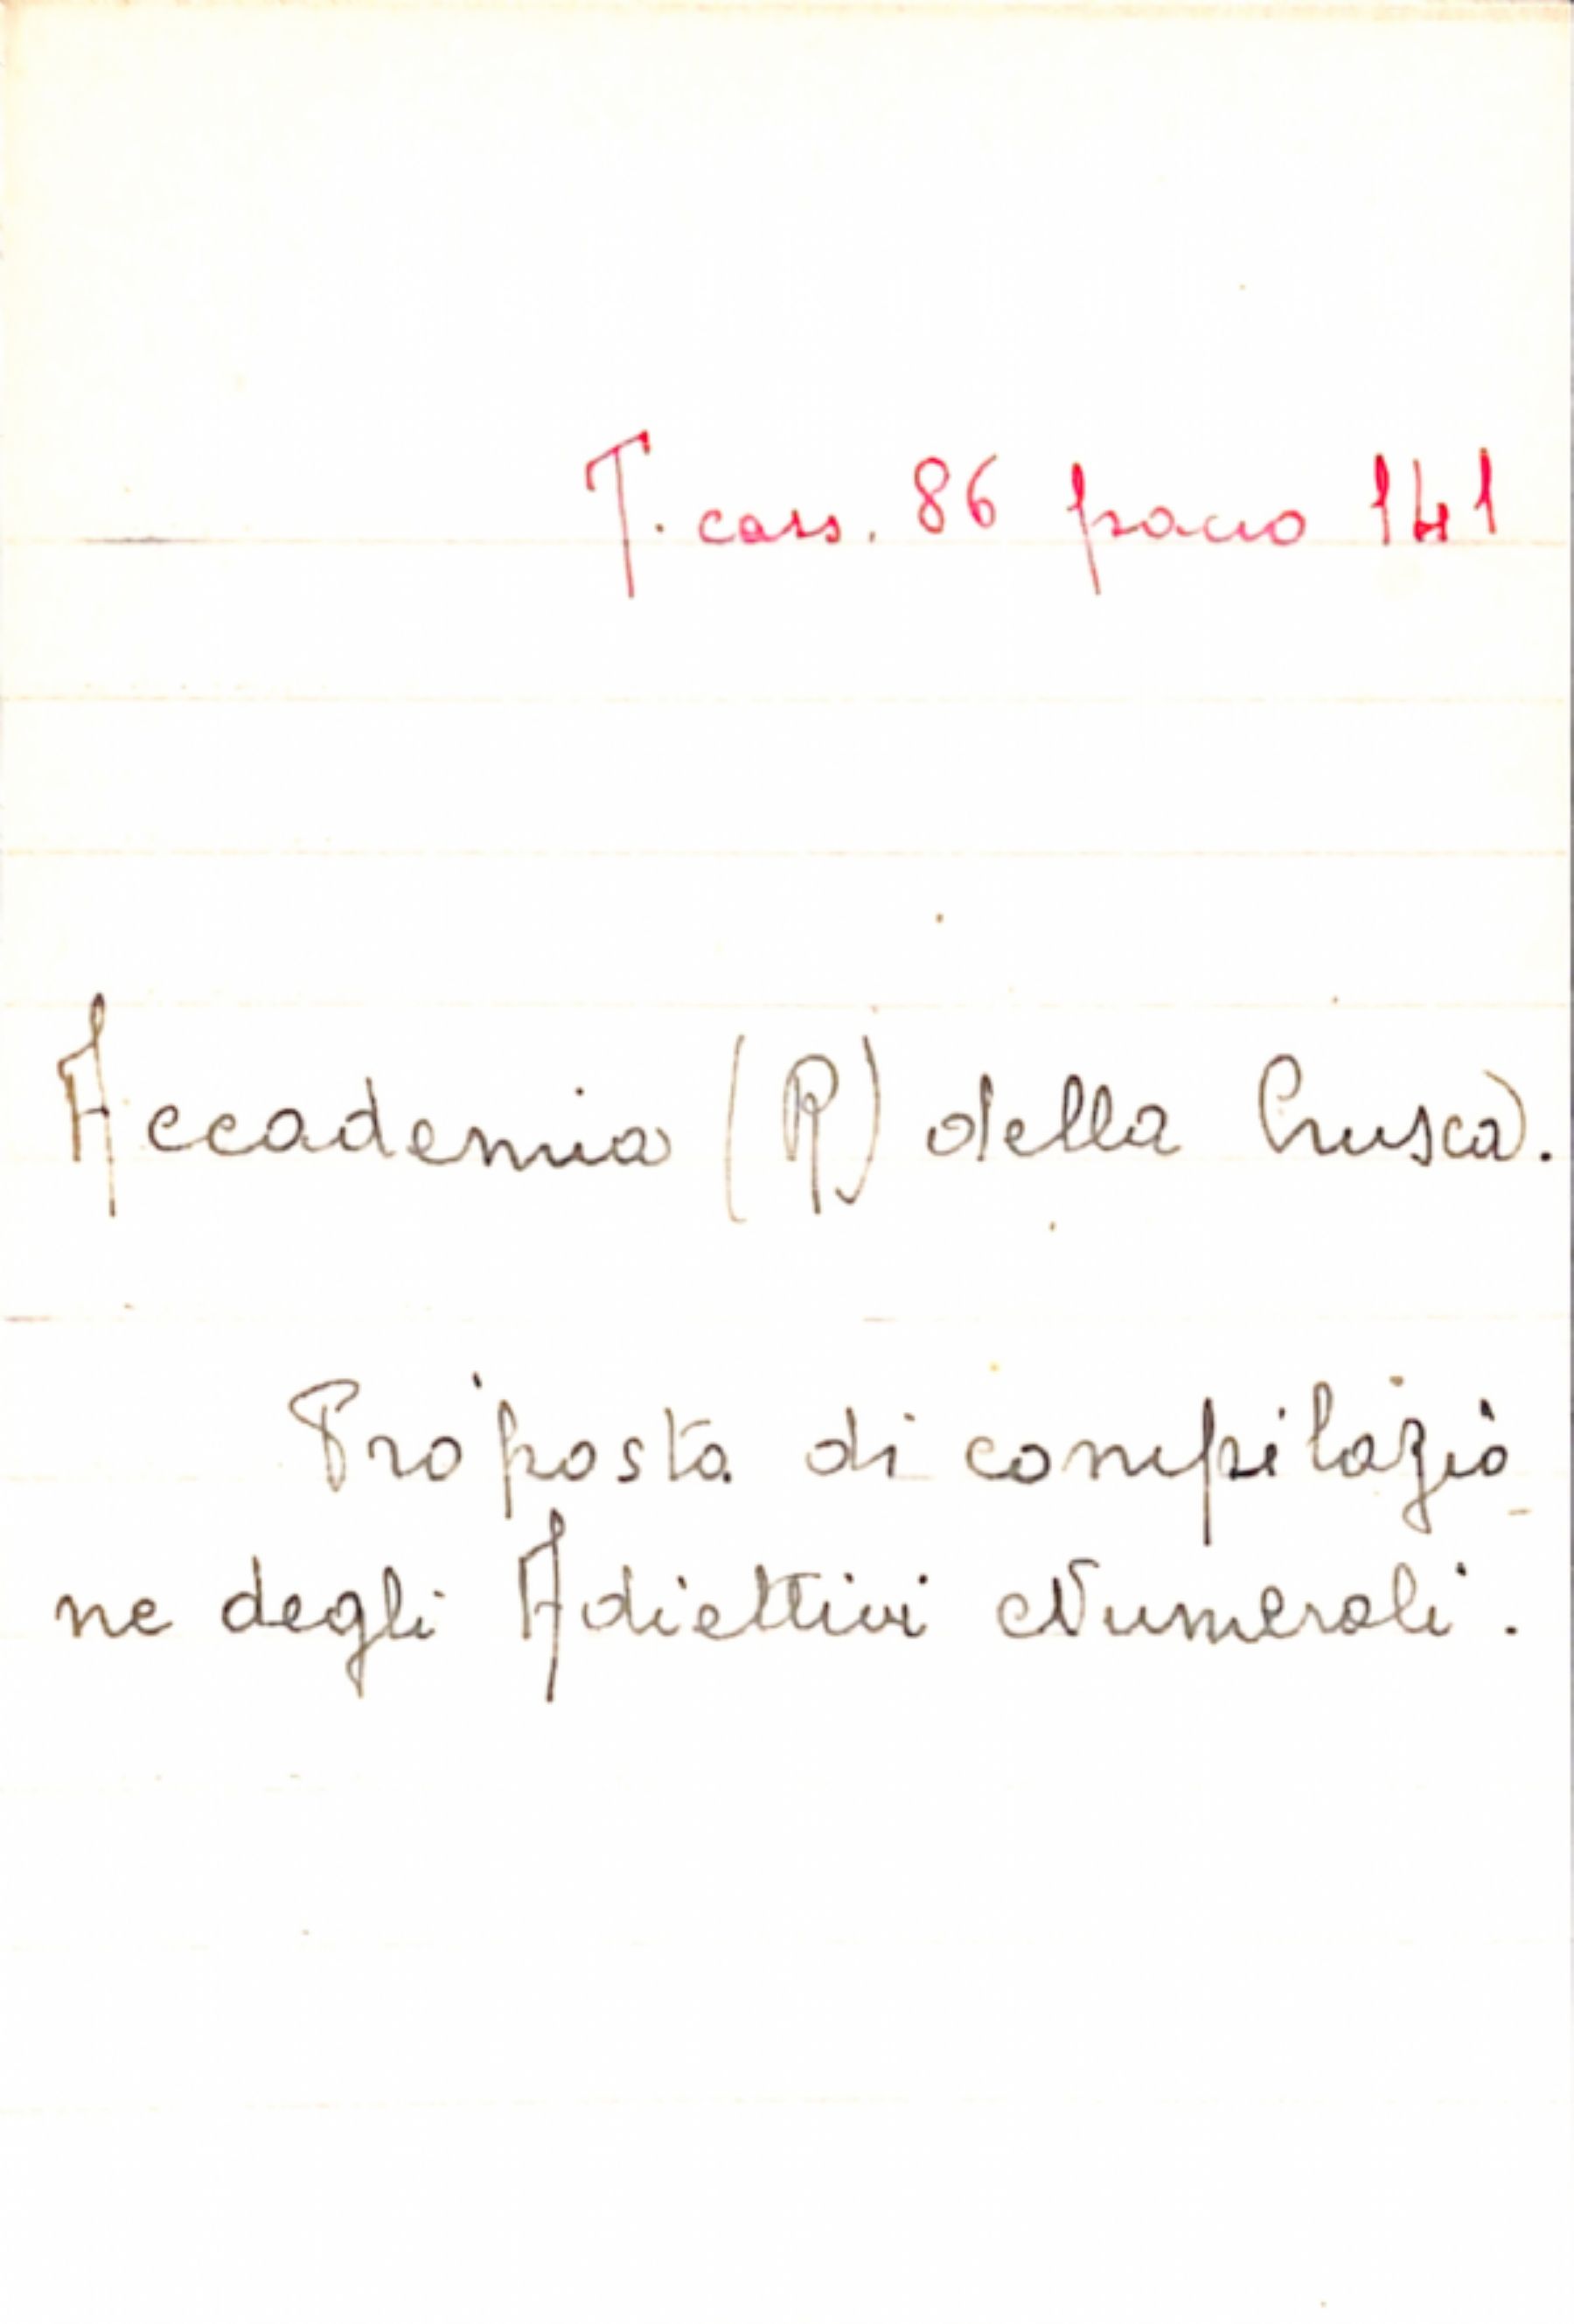 T. cass. 86 pacco 141
Accademia (R) della Crusca.
Proposta di compilazio_
ne degli Adiettivi Numerali.